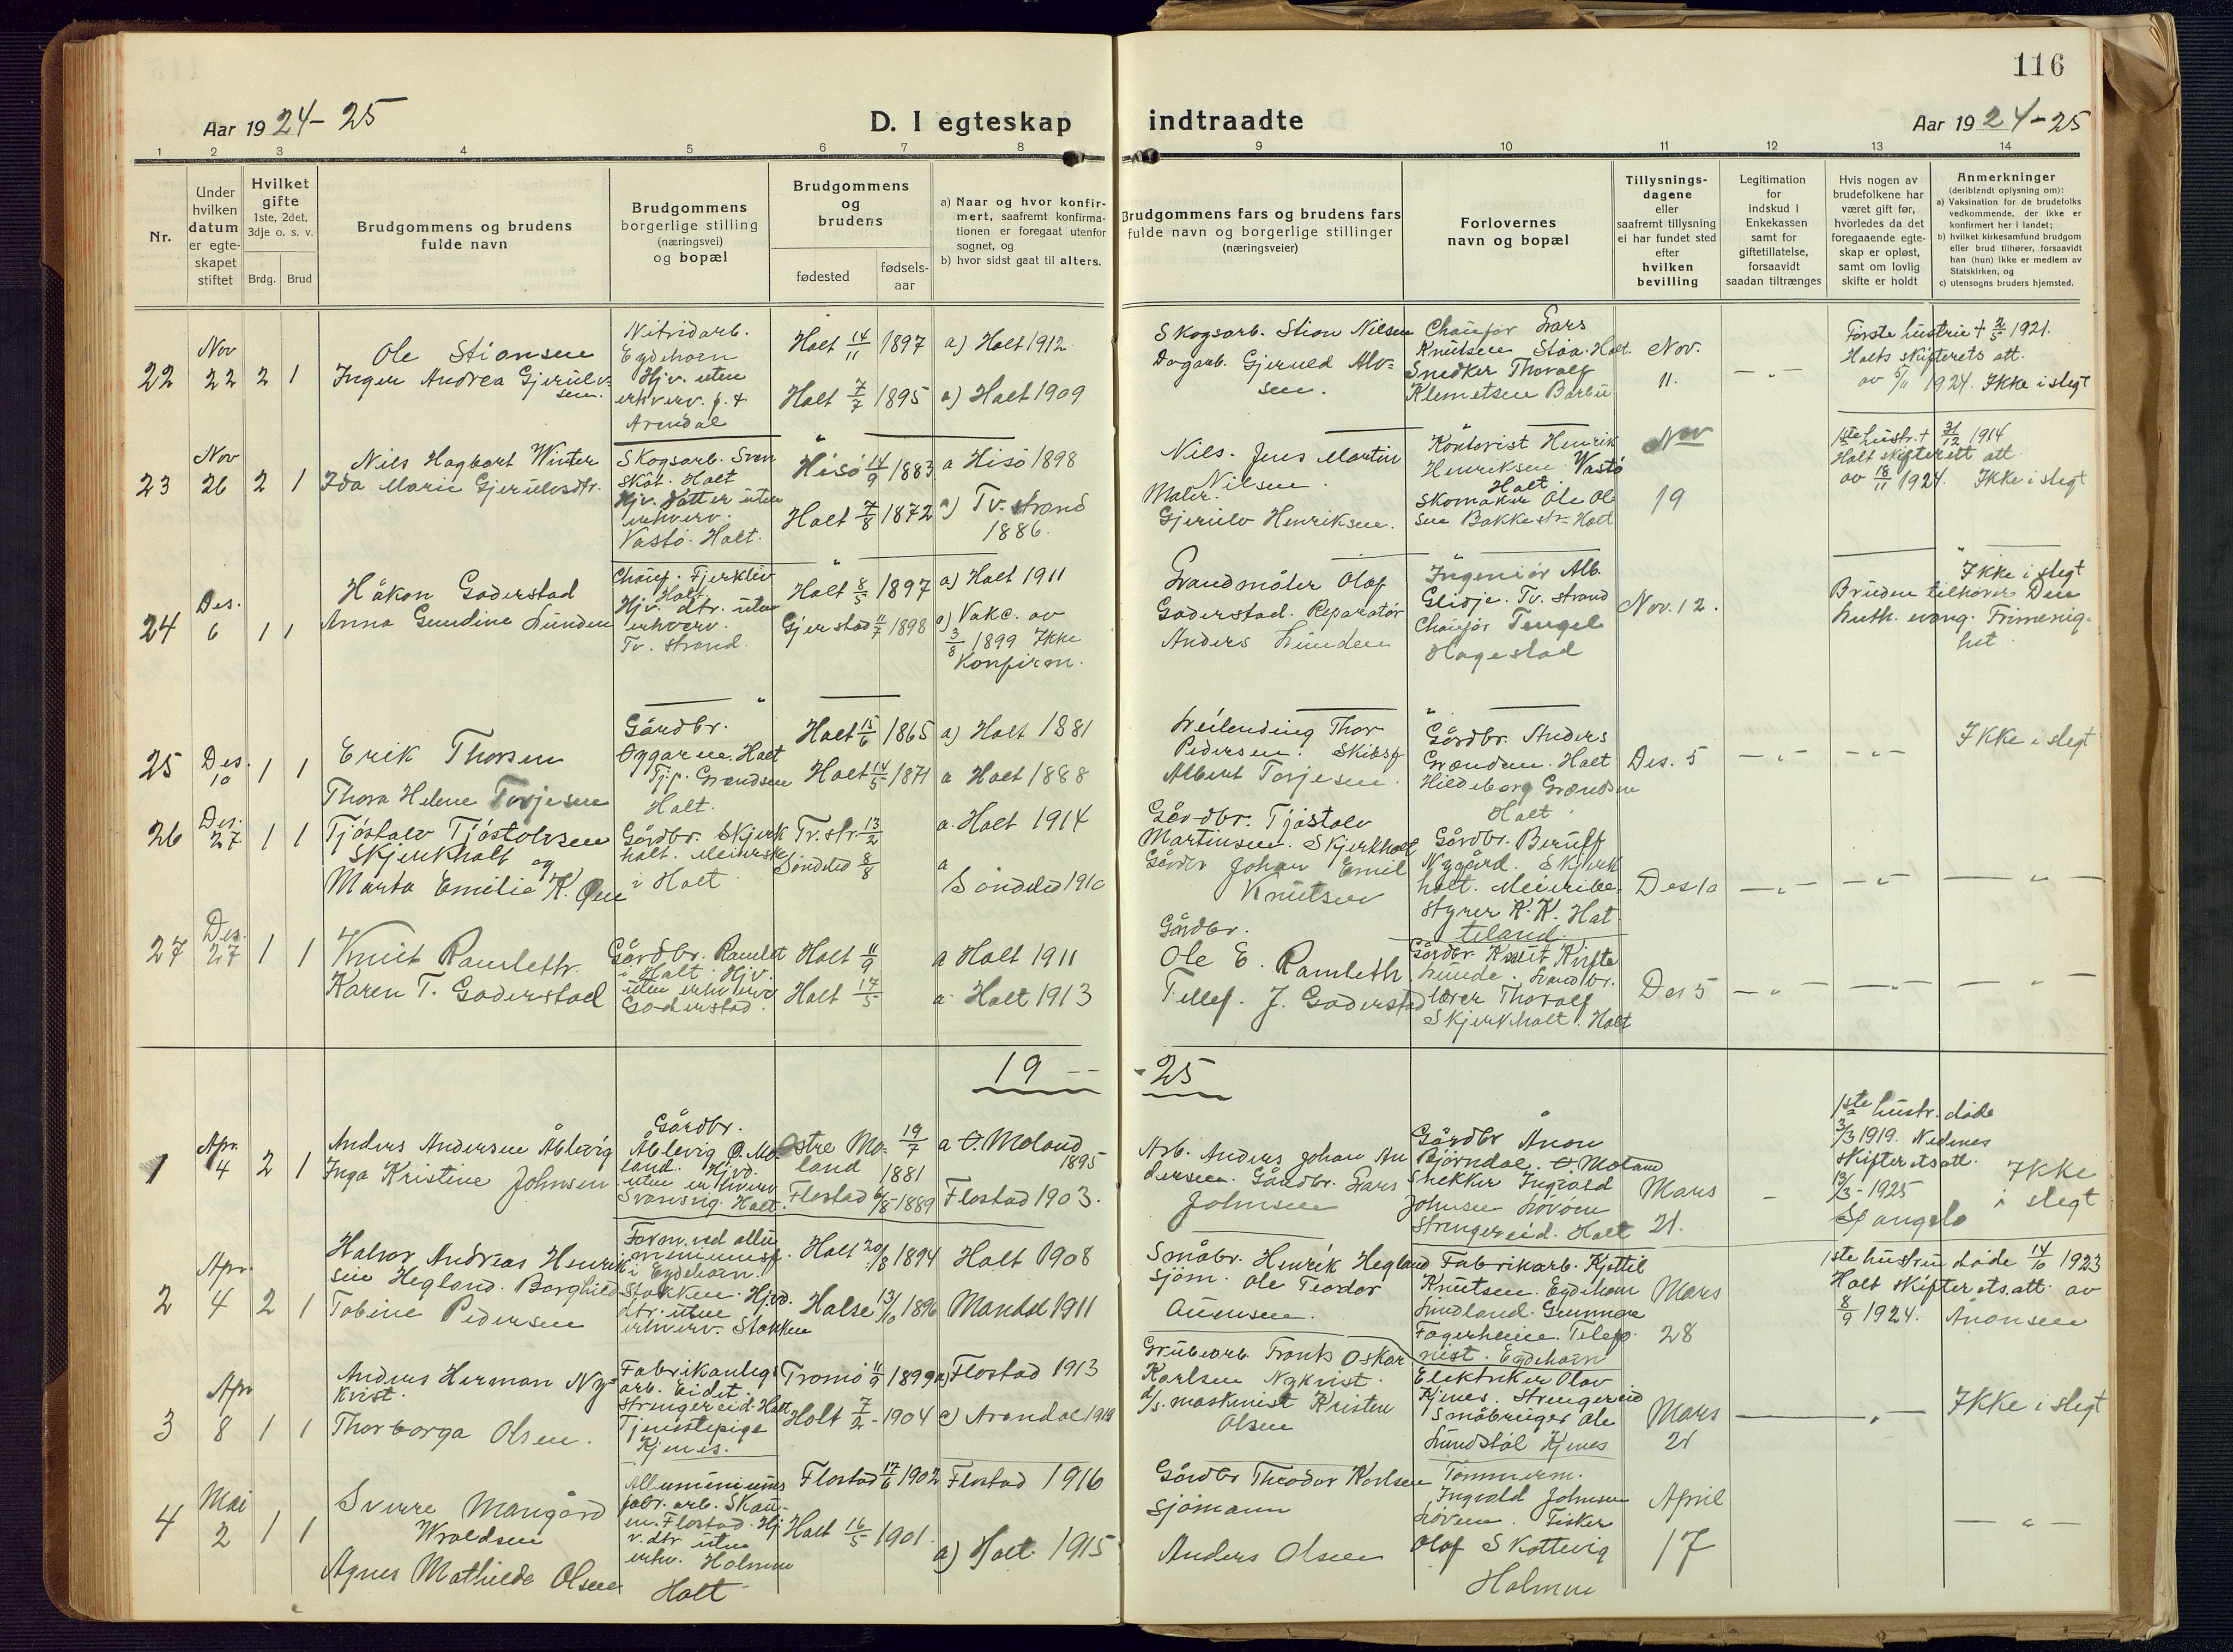 116
Aar 1924-25
D. I egteskap
indtraadte
Aar 1924-25
1 2 3 4 5 6 7 8 9 10 11 12 13 14
Nr.
Under
hvilken
datum
er egte-
skapet
stiftet
Hvilket
gifte
1ste, 2det,
3dje o. s. v.
Brdg. Brud
Brudgommens og brudens
fulde navn
Brudgommens
borgerlige stilling
(næringsvei)
og bopæl
Brudgommens
og
brudens
fødested
fødsels-
aar
a) Naar og hvor konfir-
mert, saafremt konfirma-
tionen er foregaat utenfor
sognet, og
b) hvor sidst gaat til alters.
Brudgommens fars og brudens fars
fulde navn og borgerlige stillinger
(næringsveier)
Forlovernes
navn og bopæl
Tillysnings-
dagene
eller
saafremt tillysning
ei har fundet sted
efter
hvilken
bevilling
Legitimation
for
indskud i
Enkekassen
samt for
giftetillatelse,
forsaavidt
saadan tiltrænges
Hvis nogen av
brudefolkene har
været gift før,
hvorledes da det
foregaaende egte-
skap er opløst,
samt om lovlig
skifte er holdt
Anmerkninger
(deriblandt oplysning om):
a) Vaksination for de brudefolks
vedkommende, der ikke er
konfirmert her i landet;
b) hvilket kirkesamfund brudgom
eller brud tilhører, forsaavidt
han (hun) ikke er medlem av
Statskirken, og
c) utensogns bruders hjemsted.
22
Nov
22
2 1
Ole Stiansen
Inger Andrea Gjerulv-
sen.
Nitridarb.
Eydehavn
Hjv. uten
erhverv. f. t
Arendal
Holt 14/11 1897
Holt 7/7 1895
a) Holt 1912
a) Holt 1909
Skogsarb. Stian Nilsen
Dagarb. Gjeruld Alv-
sen.
Chaufør Lars
Knutsen Støa. Holt.
Snedker Thoralf
Klemetsen Barbu
Nov.
11.
— „ —
Første hustru † 2/5 1921.
Holts skifterets att.
av 5/11 1924. Ikke i slegt
23
Nov
26
2 1
Nils Hagbart Winter
Ida Marie Gjerulvsdtr.
Skogsarb. Sven
Holt
Hjv. datter uten
erhverv.
Vastø. Holt.
Hisø 14/9 1883
Holt 7/8 1872
a Hisø 1898
a) Tv.strand
1886.
Nils. Jens Martin
Nilsen.
Maler.
Gjerulv Henriksen.
Henrik
Henriksen Vastø
Holt
Skomaker Ole Ol
sen Bakke Holt
Nov
19
1ste hustr. † 31/12 1914
Holt skifterett att
av 18/11 1924. Ikke i slegt
24
Des.
6
1 1
Håkon Goderstad
Anna Gundine Lunden
Chauf. Fjerkleiv
Holt.
Hjv. dtr. uten
erhverv.
Tv. strand.
Holt 8/5 1897
Gjerstad 11/7 1898
a) Holt 1911
a) Vakc. av
3/8 1899 Ikke
Konfirm.
Olaf
Goderstad. Reparatør
Anders Lunden
Ingeniør Alb.
Glidje. Tv. strand
Chaufør Tengel
Hagestad
Nov. 12.
Ikke i slegt
Bruden tilhører Den
luth. evang. Frimenig-
het
25
Des.
10
1 1
Erik Thorsen
Thora Helene Torjesen
Gårdbr.
Holt
Tjp. Grændsen
Holt.
Holt 15/6 1865
Holt 14/5 1871
a) Holt 1881
a Holt 1888
Thor
Pedersen. Skibsf
Albert Torjesen.
Gårdbr. Anders
Grændsen. Holt
Hildeborg Grændsen
Holt
Des. 5
— „ —
— „ —
Ikke i slegt
26
Des.
27
1 1
Tjøstolv Tjøstolvsen
Skjerkholt og
Marta Emilie K. Øen
Gårdbr. Skjerk
holt. Meierske
i Holt
Tv.str. 13/2
Søndeled 8/8
a. Holt 1914
a
Søndeled 1910
Gårdbr. Tjøstolv
Martinsen. Skjerkholt
Gårdbr Johan Emil
Knutsen
Gårdbr. Berulf
Nygård. Skjerk
holt. Meieribe-
styrer K. K. Hat
teland.
Des 10
— „ —
— „ —
— „ —
27
Des.
27
1 1
Knut Ramleth.
Karen T. Goderstad
Gårdbr. Ramlet
i Holt. Hjv.
uten erhverv
Goderstad.
Holt 11/9
Holt 17/5
a Holt 1911
a. Holt 1913
Gårdbr.
Ole E. Ramleth
Tellef. J. Goderstad
Gårdbr Knut Rifte
lunde.
lærer Thoralf
Skjerkholt. Holt
Des 5
— „ —
— „ —
— „ —
19 --
-25
1
Apr.
4
2 1
Anders Andersen Åblevig
Inga Kristine Johnsen
Gårdbr.
Åblevig Ø. Mo-
land. Hjvd.
uten erhverv
Svansvig. Holt.
Østre Mo-
land
19/7
1881
Flostad 6/8-1889
a Ø. Moland
1895
Flostad 1903.
Arb. Anders Johan An
dersen. Gårdbr. Lars
Johnsen
Gårdbr Anon
Bjørndal. Ø. Moland
Snekker Ingvald
Johnsen Løvøen
Strengereid. Holt
Mars
21.
1ste hustr. døde
3/3 1919. Nedenes
skifterets att.
13/3-1925
Ikke
i slegt
2
Apr.
4
2 1
Halvor Andreas Henrik
sen Hegland. Borghild
Tobine Pedersen
Form. ved allu
miniumsf.
i Eydehavn.
Stokken. Hjvd.
dtr. uten
erhverv. Stokken
Holt 20/8 1894
Halse 13/10 1896
Holt 1908
Mandal 1911
Småbr. Henrik Hegland
Sjøm. Ole Teodor
Auensen.
Fabrikarb. Kjettil
Knutsen. Eydehavn
Lundland. Gunnar
Fagerheim. Telef.
nist. Eydehavn
Mars
28
1ste hustru døde 14/10 1923
Holt skifterets.att. av
8/9 1924.
3
Apr
8
1 1
Anders Herman Ny-
kvist.
Thorborga Olsen.
Fabrikanlegs
arb. Eidet.
Strengereid. Holt
Tjenestepige
Kjenes.
Tromø 11/9 1899
Holt 7/2-1904
a) Flostad 1913
c) Arendal 1919
Grubearb. Frants Oskar
Karlsen Nykvist.
d/s. maskinist Kristen
Olsen
Elektriker Olav
Kjenes. Strengereid
Småbruger Ole
Lundstøl Kjenes
Mars
21
— „ —
Ikke i slegt
4
Mai
2
1 1
Sverre Mangård
Wroldsen
Agnes Mathilde Olsen
Alluminiums
fabr. arb. Skau-
en. Flostad. Hj
v. dtr uten
erhv. Holmen
Holt
Flostad 17/6 1902
Holt 16/5 1901.
Flostad 1916
a) Holt. 1915
Gårdbr Theodor Karlsen
Sjømann
Anders Olsen
Tømmerm.
Ingvald Johnsen
Løvøen. Fisker
Olaf Skottevig
Holmen
April
17
— „ —